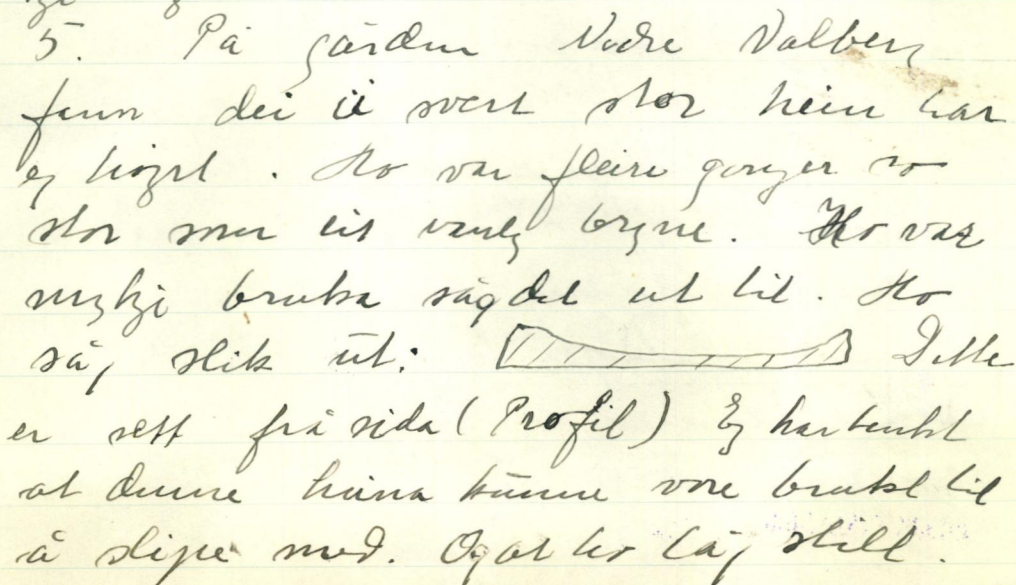 5. På gården Nedre Valberg
fann dei ei svert stor hein har
eg høyrt. Ho var fleire gonger so
stor som eit vanleg bryne. Ho var
mykje bruka såg det ut til. Ho
såg slik ut: Dette
er sett frå sida (Profil) Eg har tenkt
at denne heina kunne vore brukt til
å slipe med. Og at ho låg still.